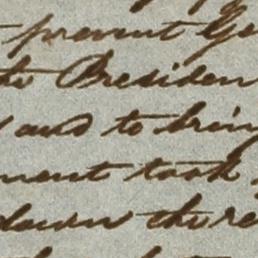 prevent Ge
te Presiden
and to bring
ment took
down there